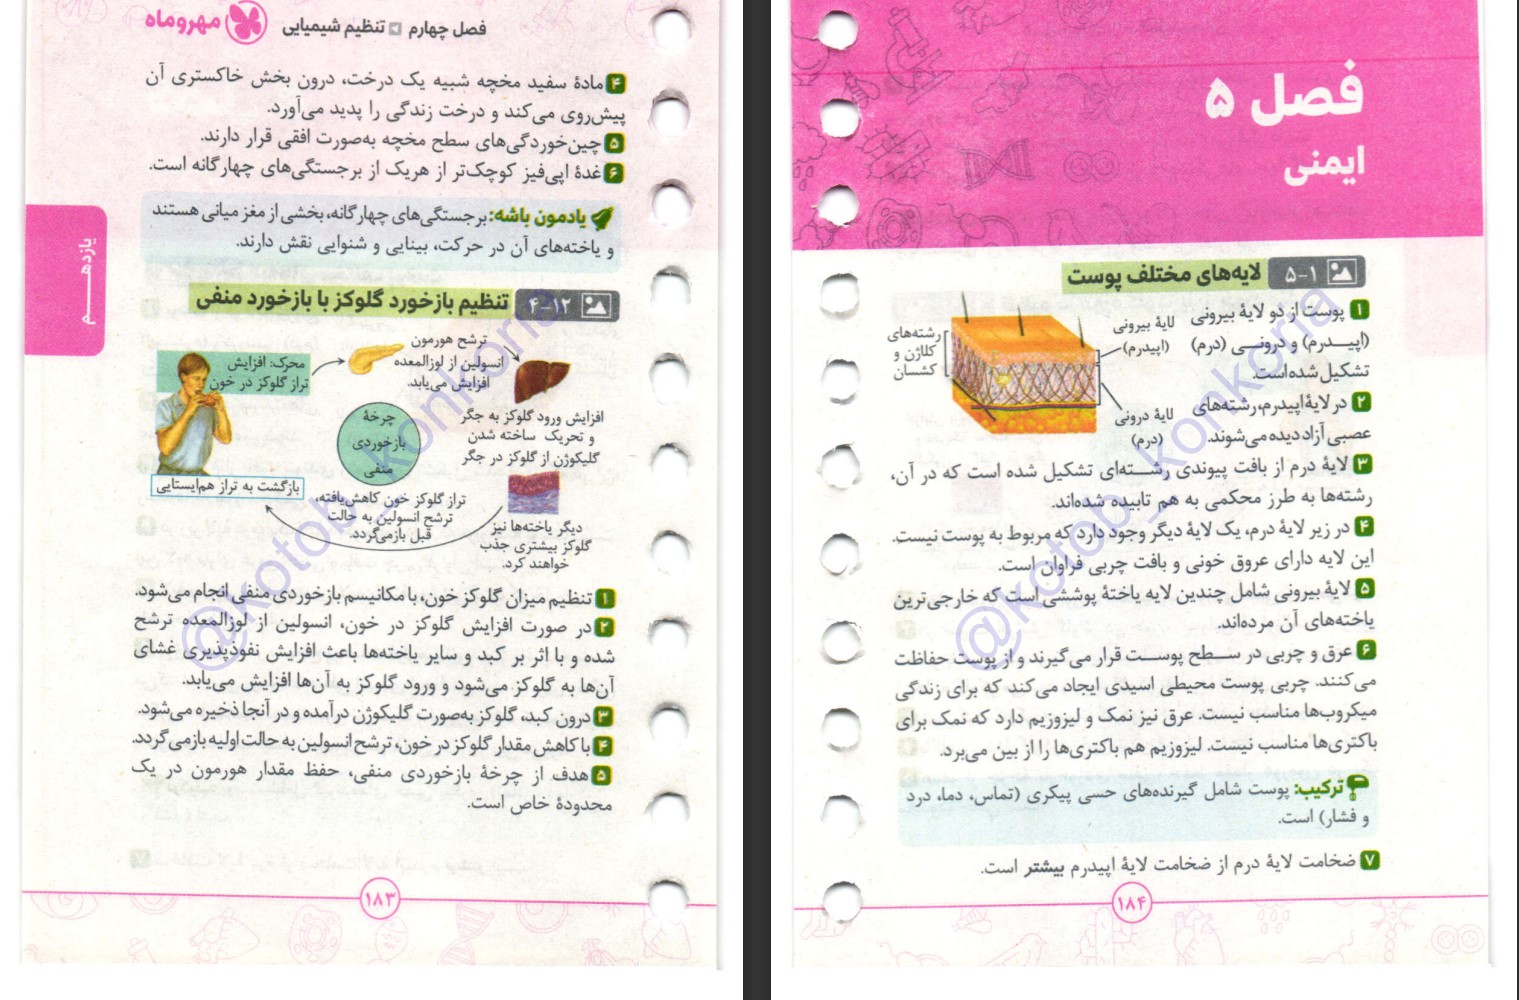 فصل چهارم تنظیم شیمیایی مهروماه
۴ مادهٔ سفید مخچه شبیه یک درخت، درون بخش خاکستری آن
پیش‌روی می‌کند و درخت زندگی را پدید می‌آورد.
۵ چین‌خوردگی‌های سطح مخچه به‌صورت افقی قرار دارند.
۶ غدهٔ اپی‌فیز کوچک‌تر از هریک از برجستگی‌های چهارگانه است.
یادمون باشه: برجستگی‌های چهارگانه، بخشی از مغز میانی هستند
و یاخته‌های آن در حرکت، بینایی و شنوایی نقش دارند.
یازدهم
۴-۱۲ تنظیم بازخورد گلوکز با بازخورد منفی
محرک: افزایش
تراز گلوکز در خون
ترشح هورمون
انسولین از لوزالمعده
افزایش می‌یابد.
افزایش ورود گلوکز به جگر
و تحریک ساخته شدن
گلیکوژن از گلوکز در جگر
چرخهٔ
بازخوردی
منفی
دیگر یاخته‌ها نیز
گلوکز بیشتری جذب
خواهند کرد.
تراز گلوکز خون کاهش‌یافته،
ترشح انسولین به حالت
قبل بازمی‌گردد.
بازگشت به تراز هم‌ایستایی
۱ تنظیم میزان گلوکز خون، با مکانیسم بازخوردی منفی انجام می‌شود.
۲ در صورت افزایش گلوکز در خون، انسولین از لوزالمعده ترشح
شده و با اثر بر کبد و سایر یاخته‌ها باعث افزایش نفوذپذیری غشای
آن‌ها به گلوکز می‌شود و ورود گلوکز به آن‌ها افزایش می‌یابد.
۳ درون کبد، گلوکز به‌صورت گلیکوژن درآمده و در آنجا ذخیره می‌شود.
۴ با کاهش مقدار گلوکز در خون، ترشح انسولین به حالت اولیه بازمی‌گردد.
۵ هدف از چرخهٔ بازخوردی منفی، حفظ مقدار هورمون در یک
محدودهٔ خاص است.
۱۸۳
@kotob_konkoria
فصل ۵
ایمنی
۵-۱ لایه‌های مختلف پوست
۱ پوست از دو لایهٔ بیرونی
(اپیدرم) و درونی (درم)
تشکیل شده است.
۲ در لایهٔ اپیدرم، رشته‌های
عصبی آزاد دیده می‌شوند.
لایهٔ بیرونی
(اپیدرم)
لایهٔ درونی
(درم)
رشته‌های
کلاژن و
کشسان
۳ لایهٔ درم از بافت پیوندی رشته‌ای تشکیل شده است که در آن،
رشته‌ها به طرز محکمی به هم تابیده شده‌اند.
۴ در زیر لایهٔ درم، یک لایهٔ دیگر وجود دارد که مربوط به پوست نیست.
این لایه دارای عروق خونی و بافت چربی فراوان است.
۵ لایهٔ بیرونی شامل چندین لایه یاختهٔ پوششی است که خارجی‌ترین
یاخته‌های آن مرده‌اند.
۶ عرق و چربی در سطح پوست قرار می‌گیرند و از پوست حفاظت
می‌کنند. چربی پوست محیطی اسیدی ایجاد می‌کند که برای زندگی
میکروب‌ها مناسب نیست. عرق نیز نمک و لیزوزیم دارد که نمک برای
باکتری‌ها مناسب نیست. لیزوزیم هم باکتری‌ها را از بین می‌برد.
ترکیب: پوست شامل گیرنده‌های حسی پیکری (تماس، دما، درد
و فشار) است.
۷ ضخامت لایهٔ درم از ضخامت لایهٔ اپیدرم بیشتر است.
۱۸۴
@kotob_konkoria